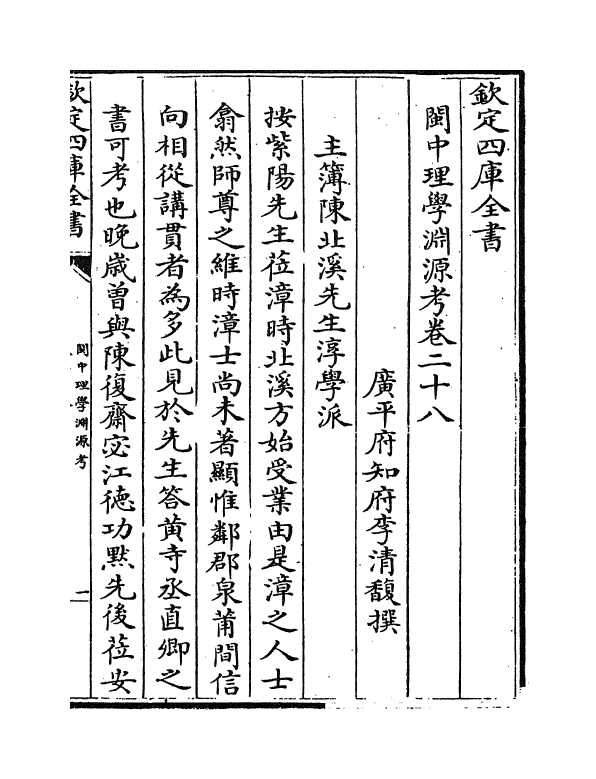 欽定四庫全書
閩中理學淵源考卷二十八
廣平府知府李清馥撰
主簿陳北溪先生淳學派
按紫陽先生莅漳時北溪方始受業由是漳之人士
翕然師尊之維時漳士尚未著顯惟鄰郡泉莆間信
向相從講貫者為多此見於先生答黄寺丞直卿之
書可考也晚歲曽與陳復齋宓江徳功黙先後莅安
欽定四庫全書
閩中理學淵源考
一